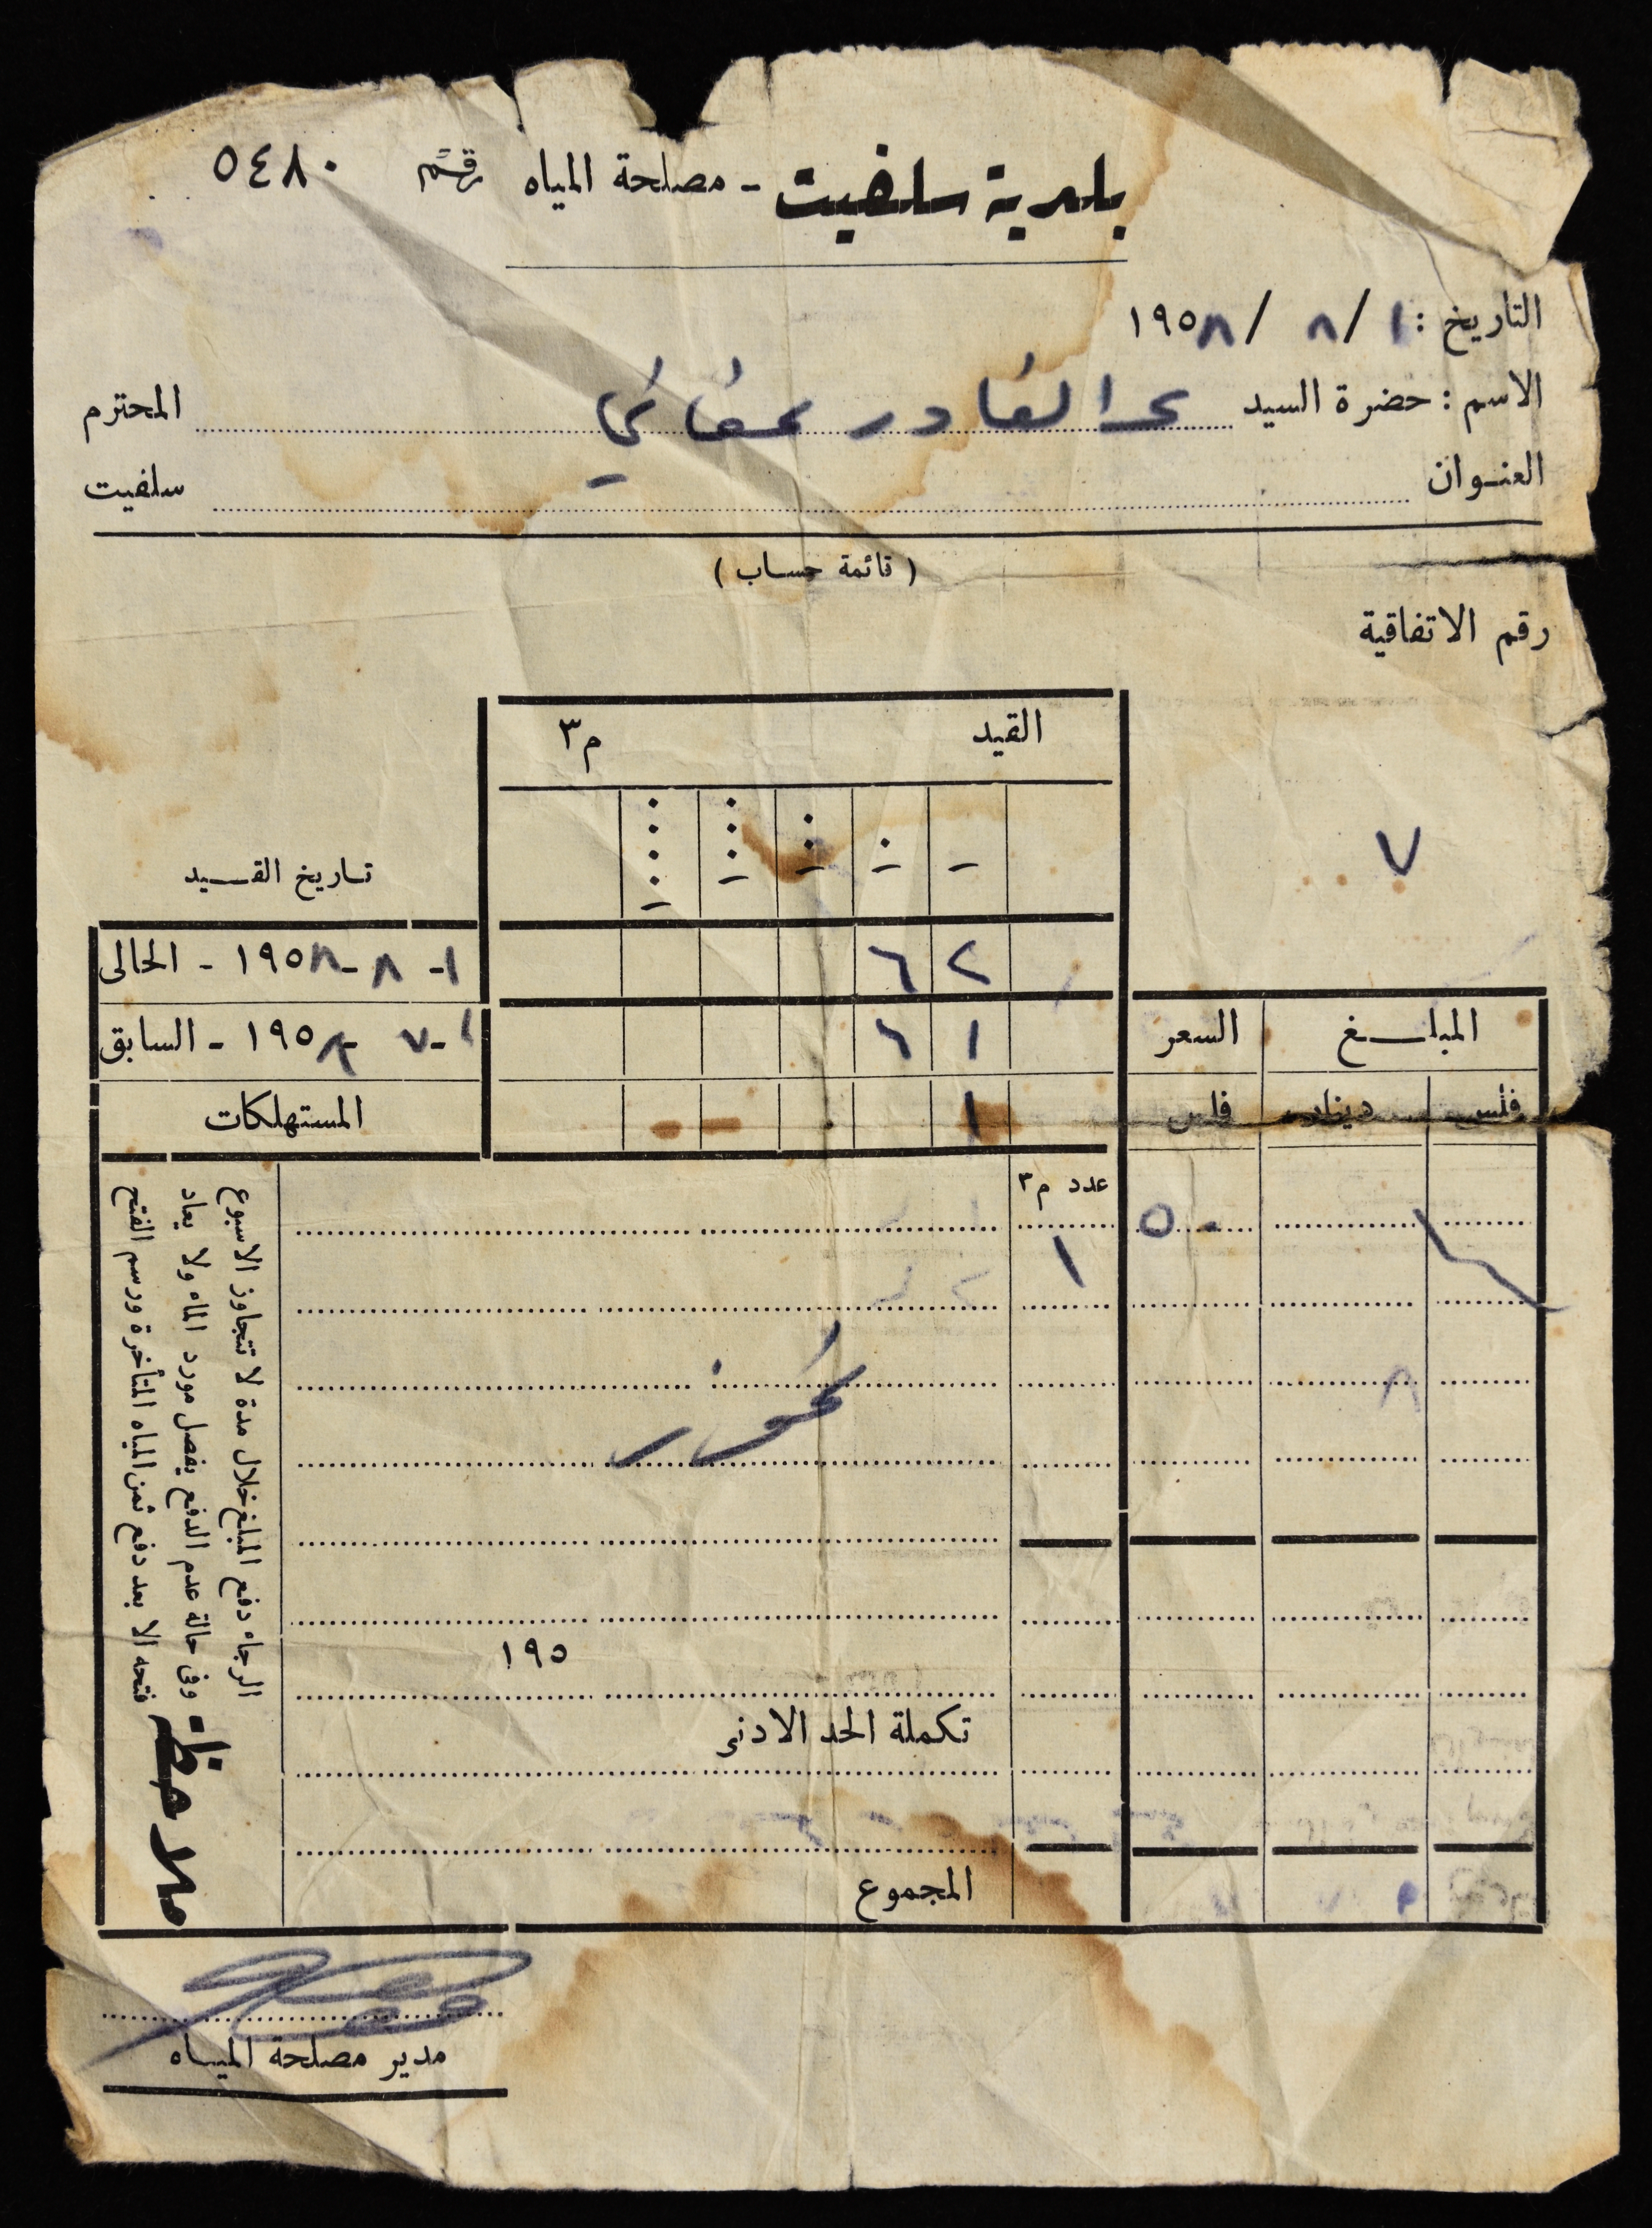 بلدية سلفيت - مصلحة المياه رقم ٥٤٨٠
التاريخ : ١ / ٨ / ١٩٥٨
الاسم : حضرة السيد عبد القادر عفاني المحترم
العنوان سلفيت
( قائمة حساب )
رقم الاتفاقية
٧
القيد م٣
تاريخ القيد
١ - ٨ - ١٩٥٨ - الحالى
٦٢
١ - ٧ - ١٩٥٨ - السابق
٦١
المستهلكات
١
المبلغ السعر
فلس دينار فلس
عدد م٣
١ ٥٠
١٩٥
تكملة الحد الادنى
المجموع
ملاحظة
الرجاء دفع المبلغ خلال مدة لا تتجاوز الاسبوع
وفى حالة عدم الدفع يفصل مورد الماء ولا يعاد
فتحه الا بعد دفع ثمن المياه المتأخرة ورسم الفتح
مدير مصلحة المياه